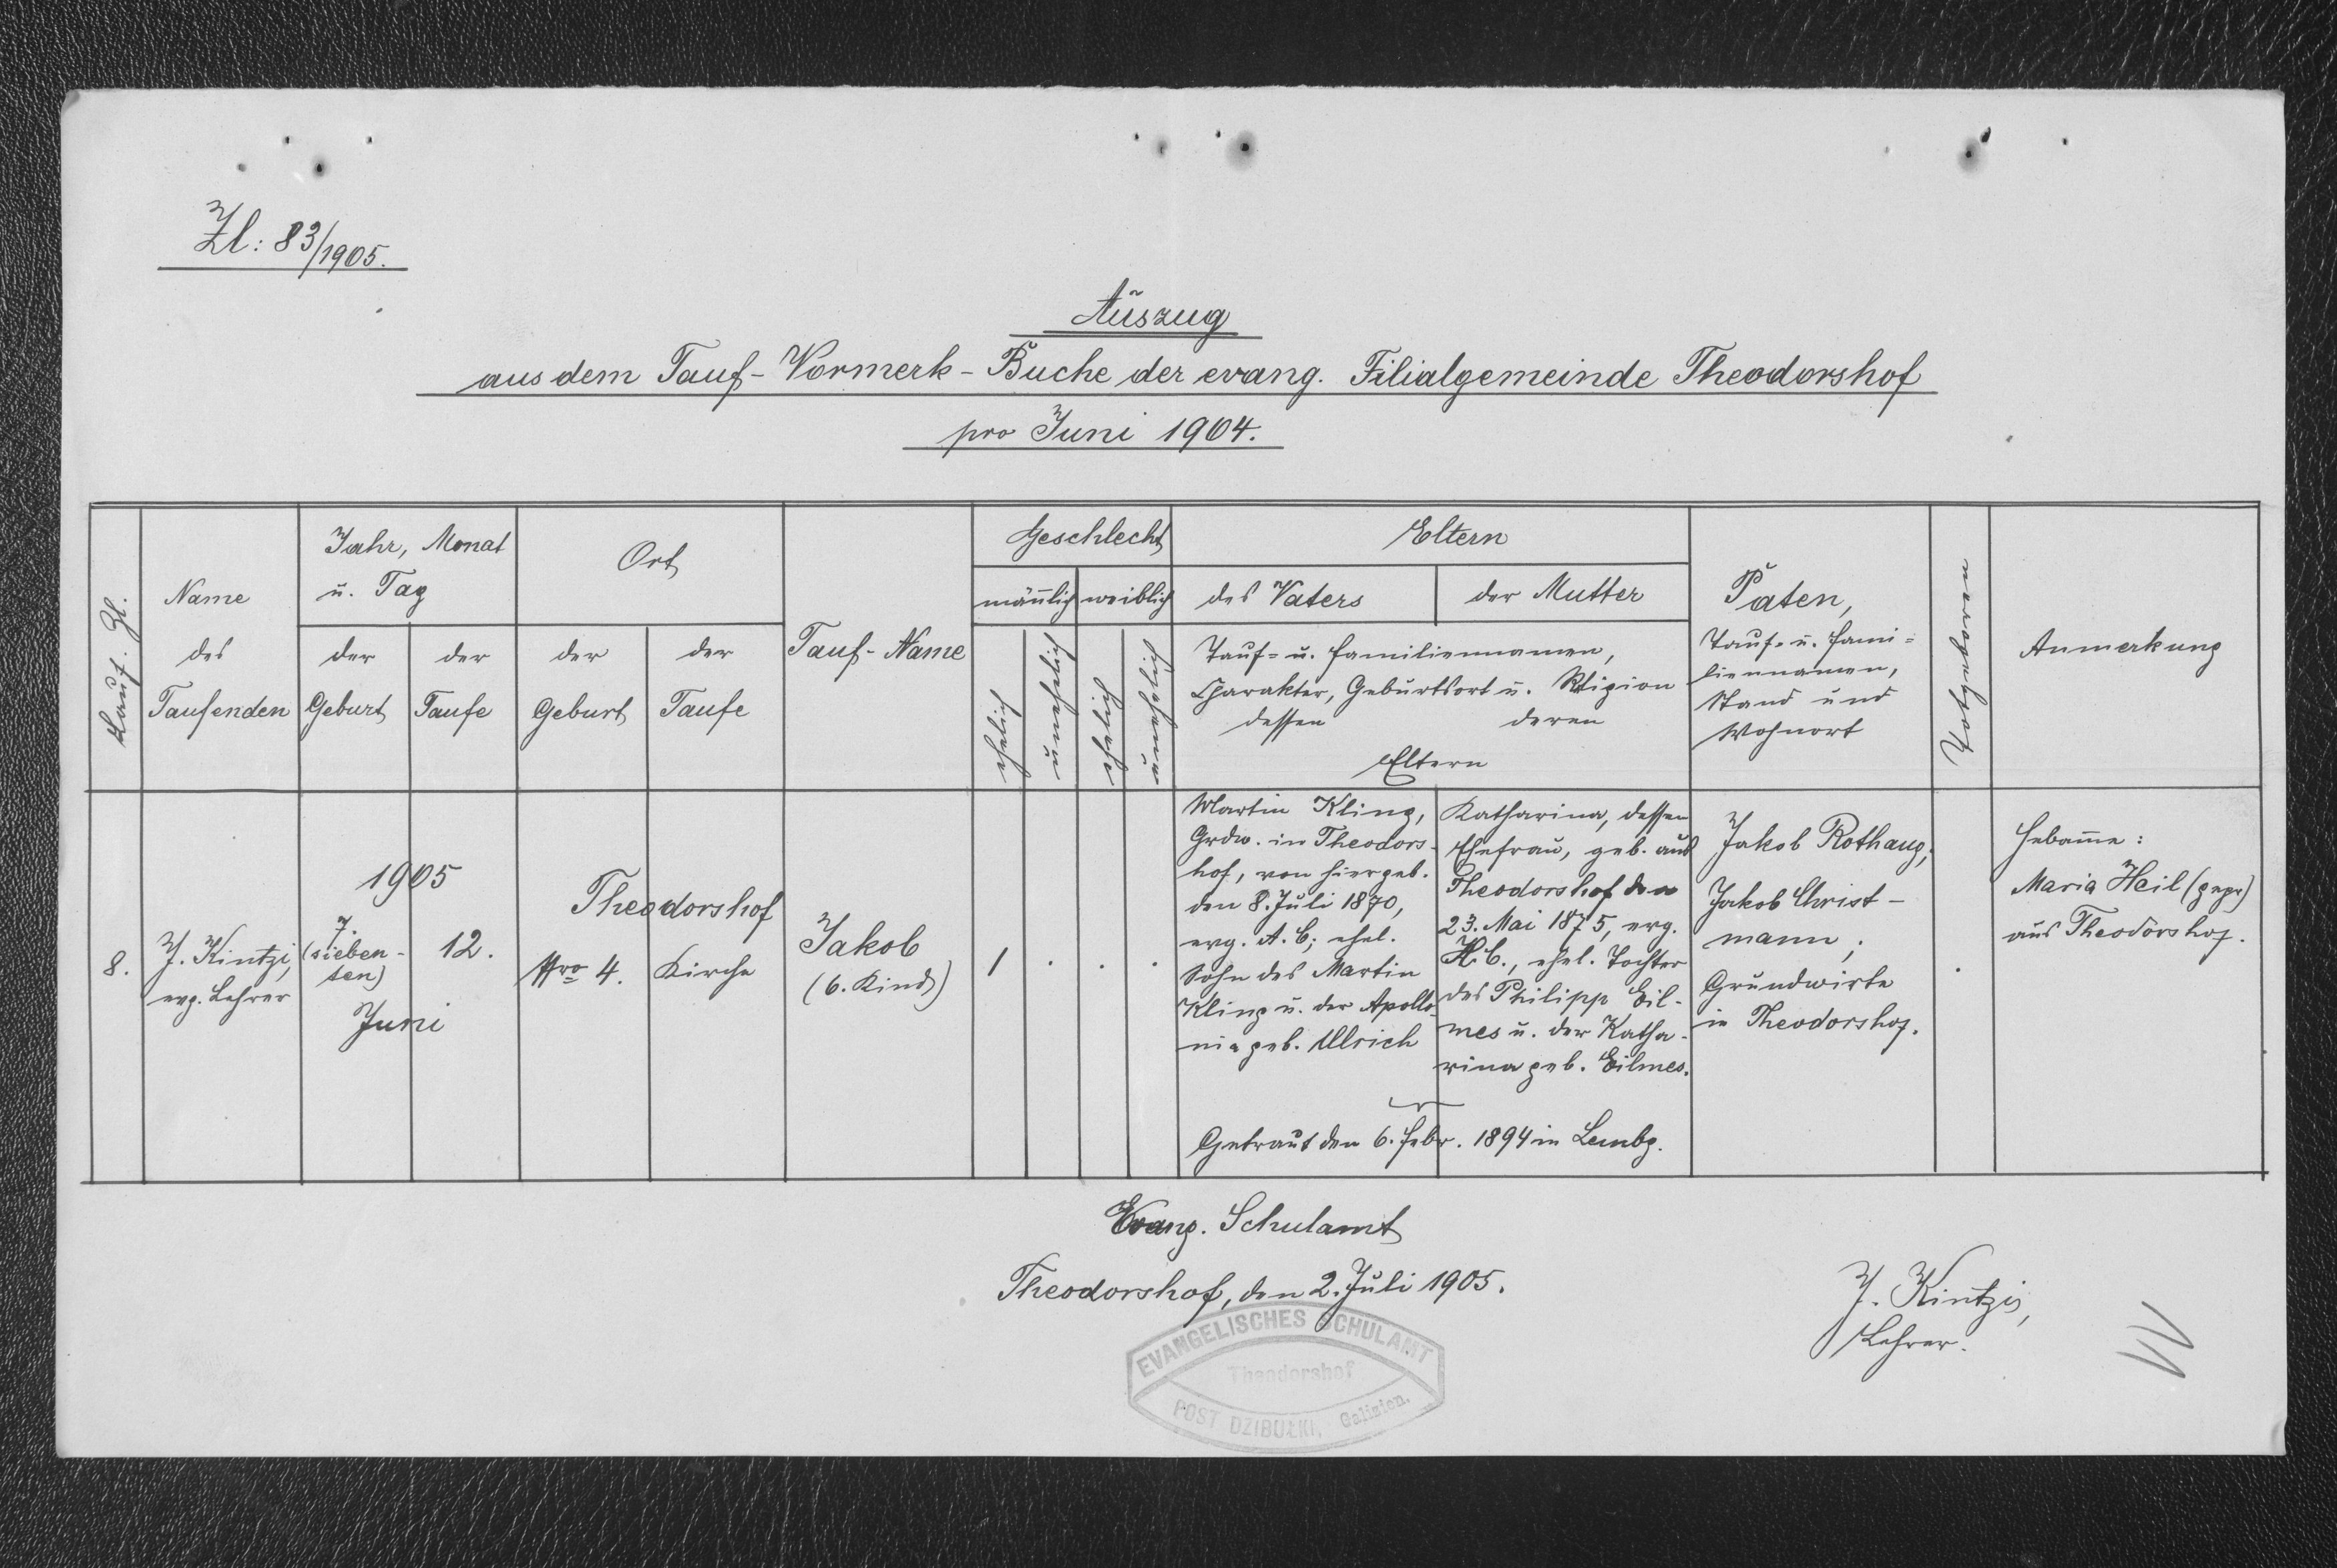 Zl: 83/1905.
Auszug
aus dem Tauf-Vormerk-Buche der evang. Filialgemeinde Theodorshof
pro Juni 1904.
Lauf. Zl.
Name
des
Taufenden
Jahr, Monat
u. Tag
der
Geburt
der
Taufe
Ort
der
Geburt
der
Taufe
Tauf-Name
Geschlecht
mänlich
weiblich
ehelich
unehelich
ehelich
unehelich
Eltern
des Vaters
der Mutter
Tauf- u. Familiennamen,
Charakter, Geburtsort u. Religion
dessen
deren
Eltern
Paten,
Tauf- u. Fami-
liennamen,
Stand und
Wohnort
Totgeboren
Anmerkung
8.
J. Kintzi,
evg. Lehrer
1905
7.
(sieben-
ten)
12.
Juni
Theodorshof
Nro 4.
Kirche
Jakob
(6. Kind)
1
.
.
.
Martin Kling,
Grdw. in Theodors-
hof, von hier geb.
den 8. Juli 1870,
evg. A. C; ehel.
Sohn des Martin
Kling u. der Apollo-
nia geb. Ullrich
Katharina, dessen
Ehefrau, geb. aus
Theodorshof den
23. Mai 1875, evg.
H. C., ehel. Tochter
des Philipp Eil-
mes u. der Katha-
rina geb. Eilmes.
Getraut den 6. Febr. 1894 in Lembg.
Jakob Rothaug;
Jakob Christ-
mann;
Grundwirte
in Theodorshof.
.
Hebame:
Maria Heil (gepr)
aus Theodorshof.
Evang. Schulamt
Theodorshof, den 2. Juli 1905.
J. Kintzi,
Lehrer.
EVANGELISCHES SCHULAMT
Theodorshof
POST DZIBUŁKI, Galizien.